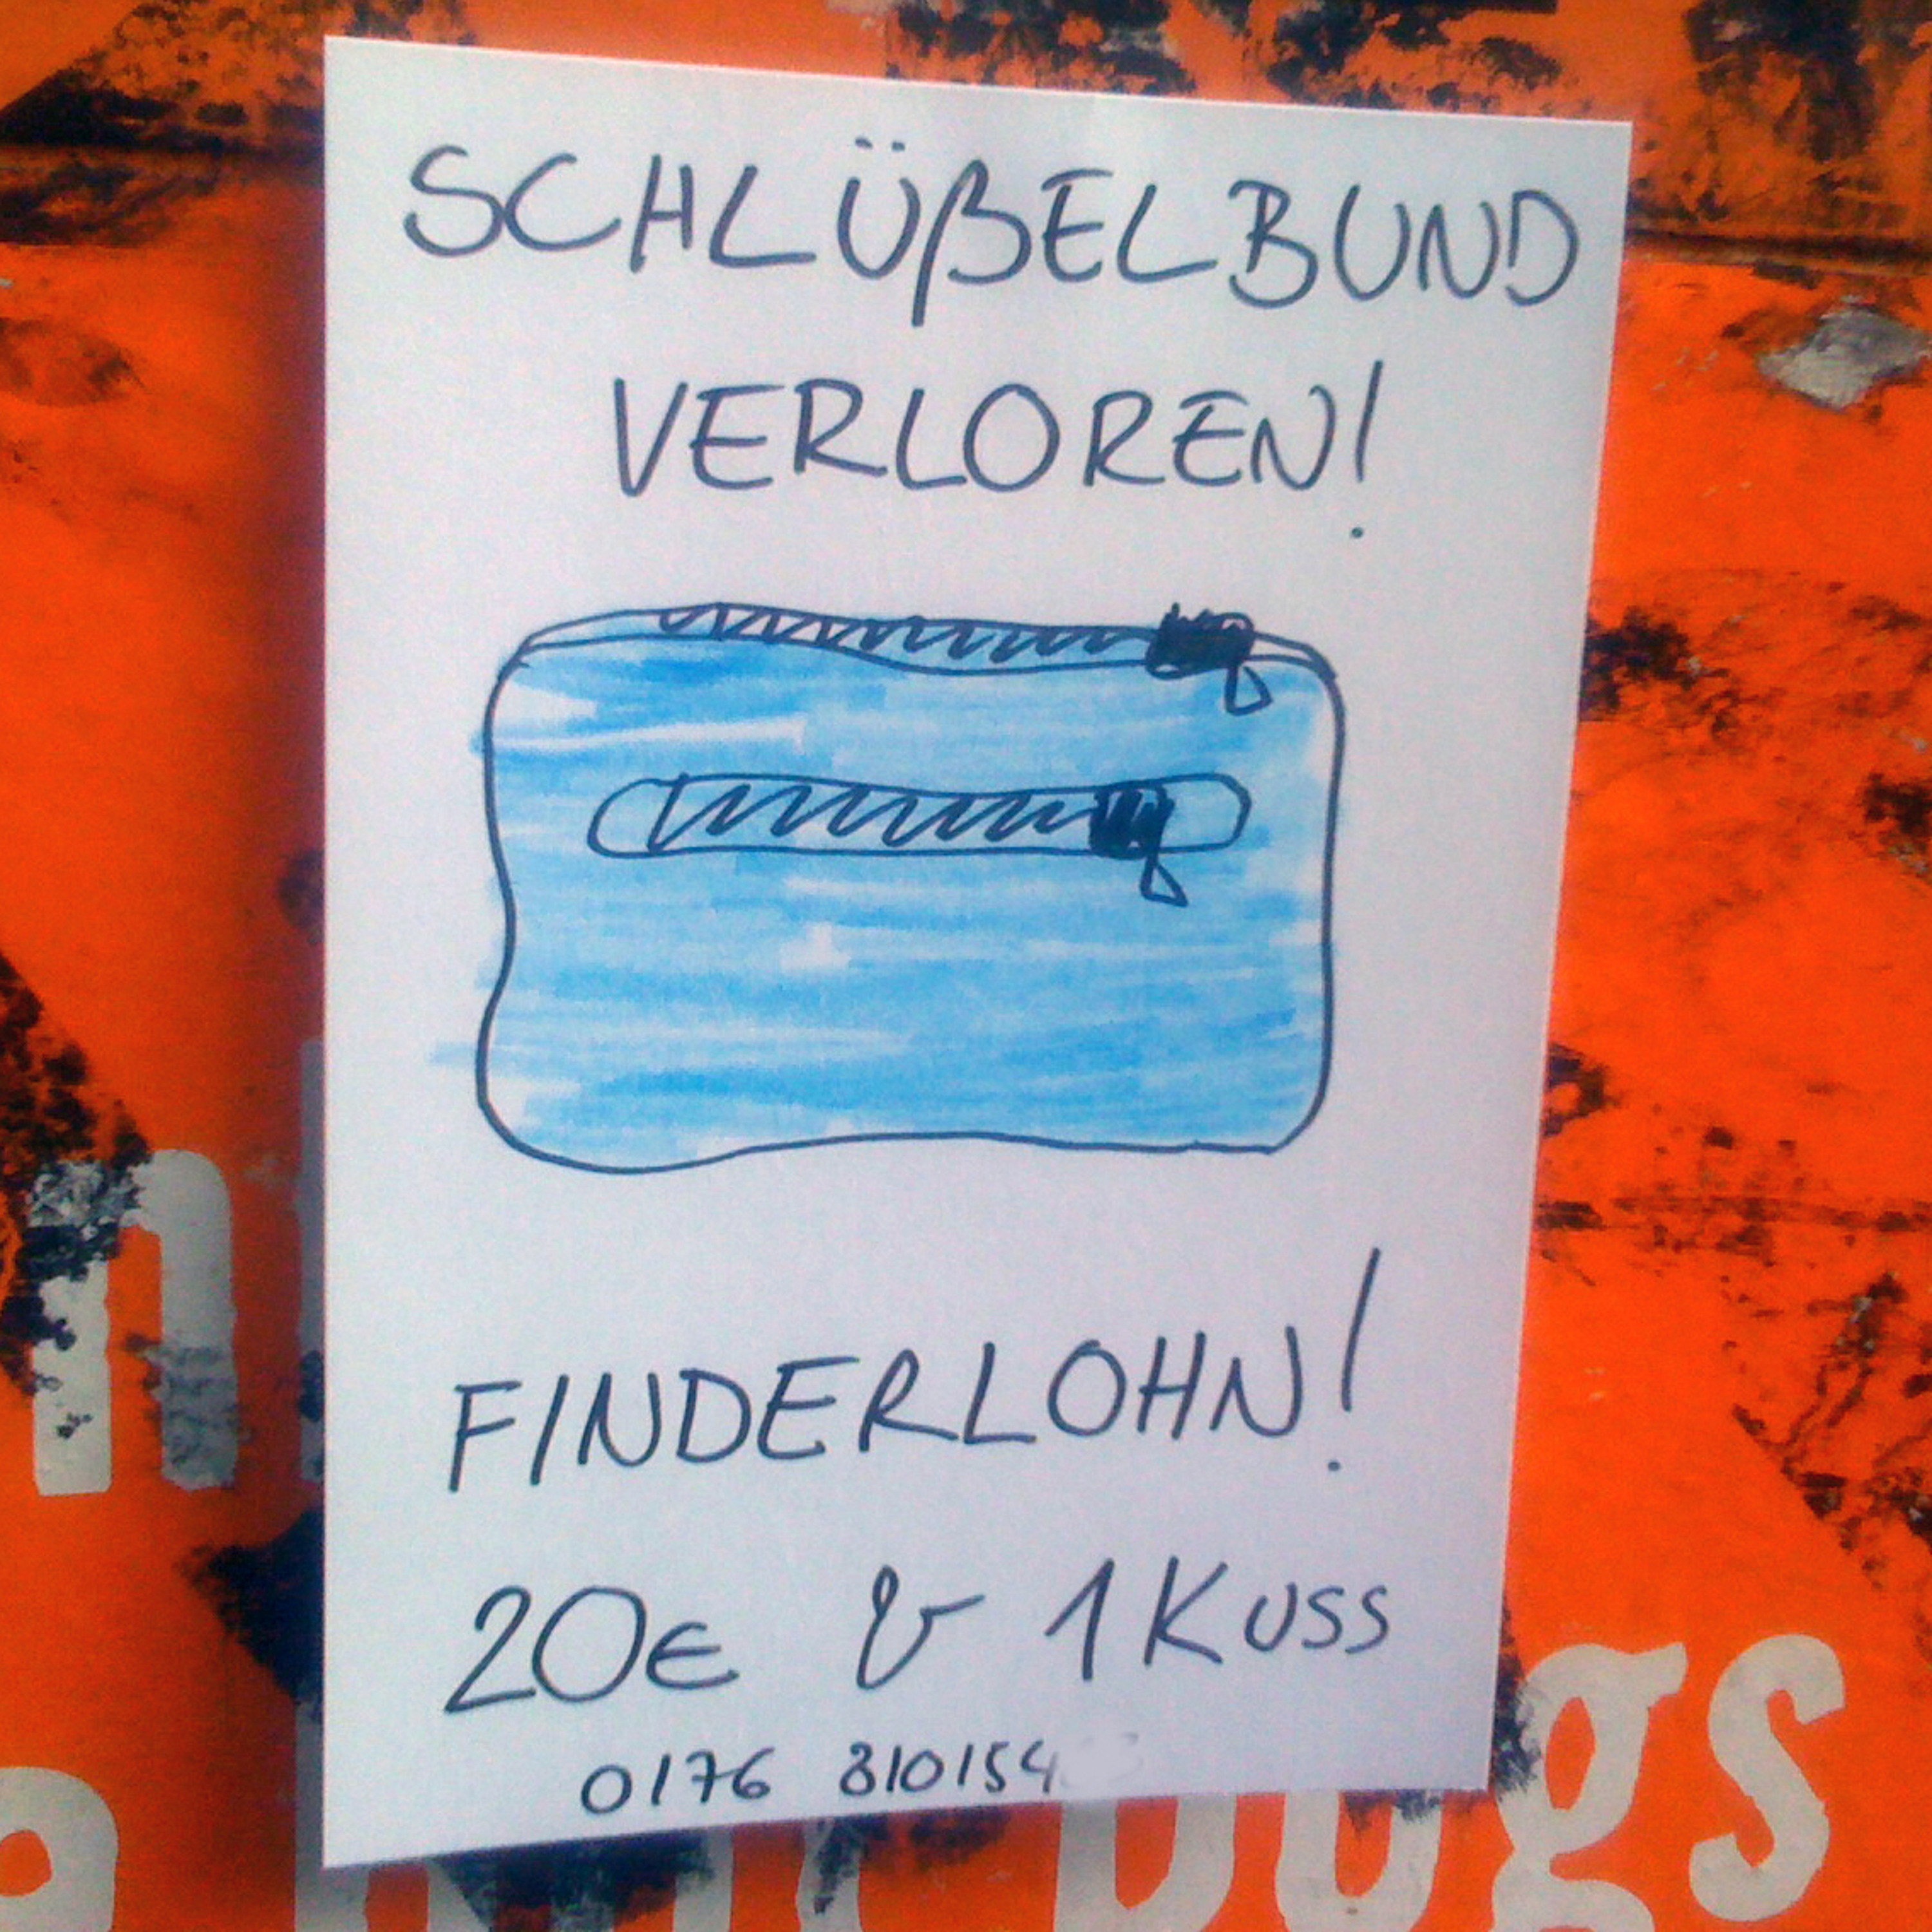 SCHLÜßELBUND
VERLOREN!
FINDERLOHN!
20€ & 1 KUSS
0176 810154